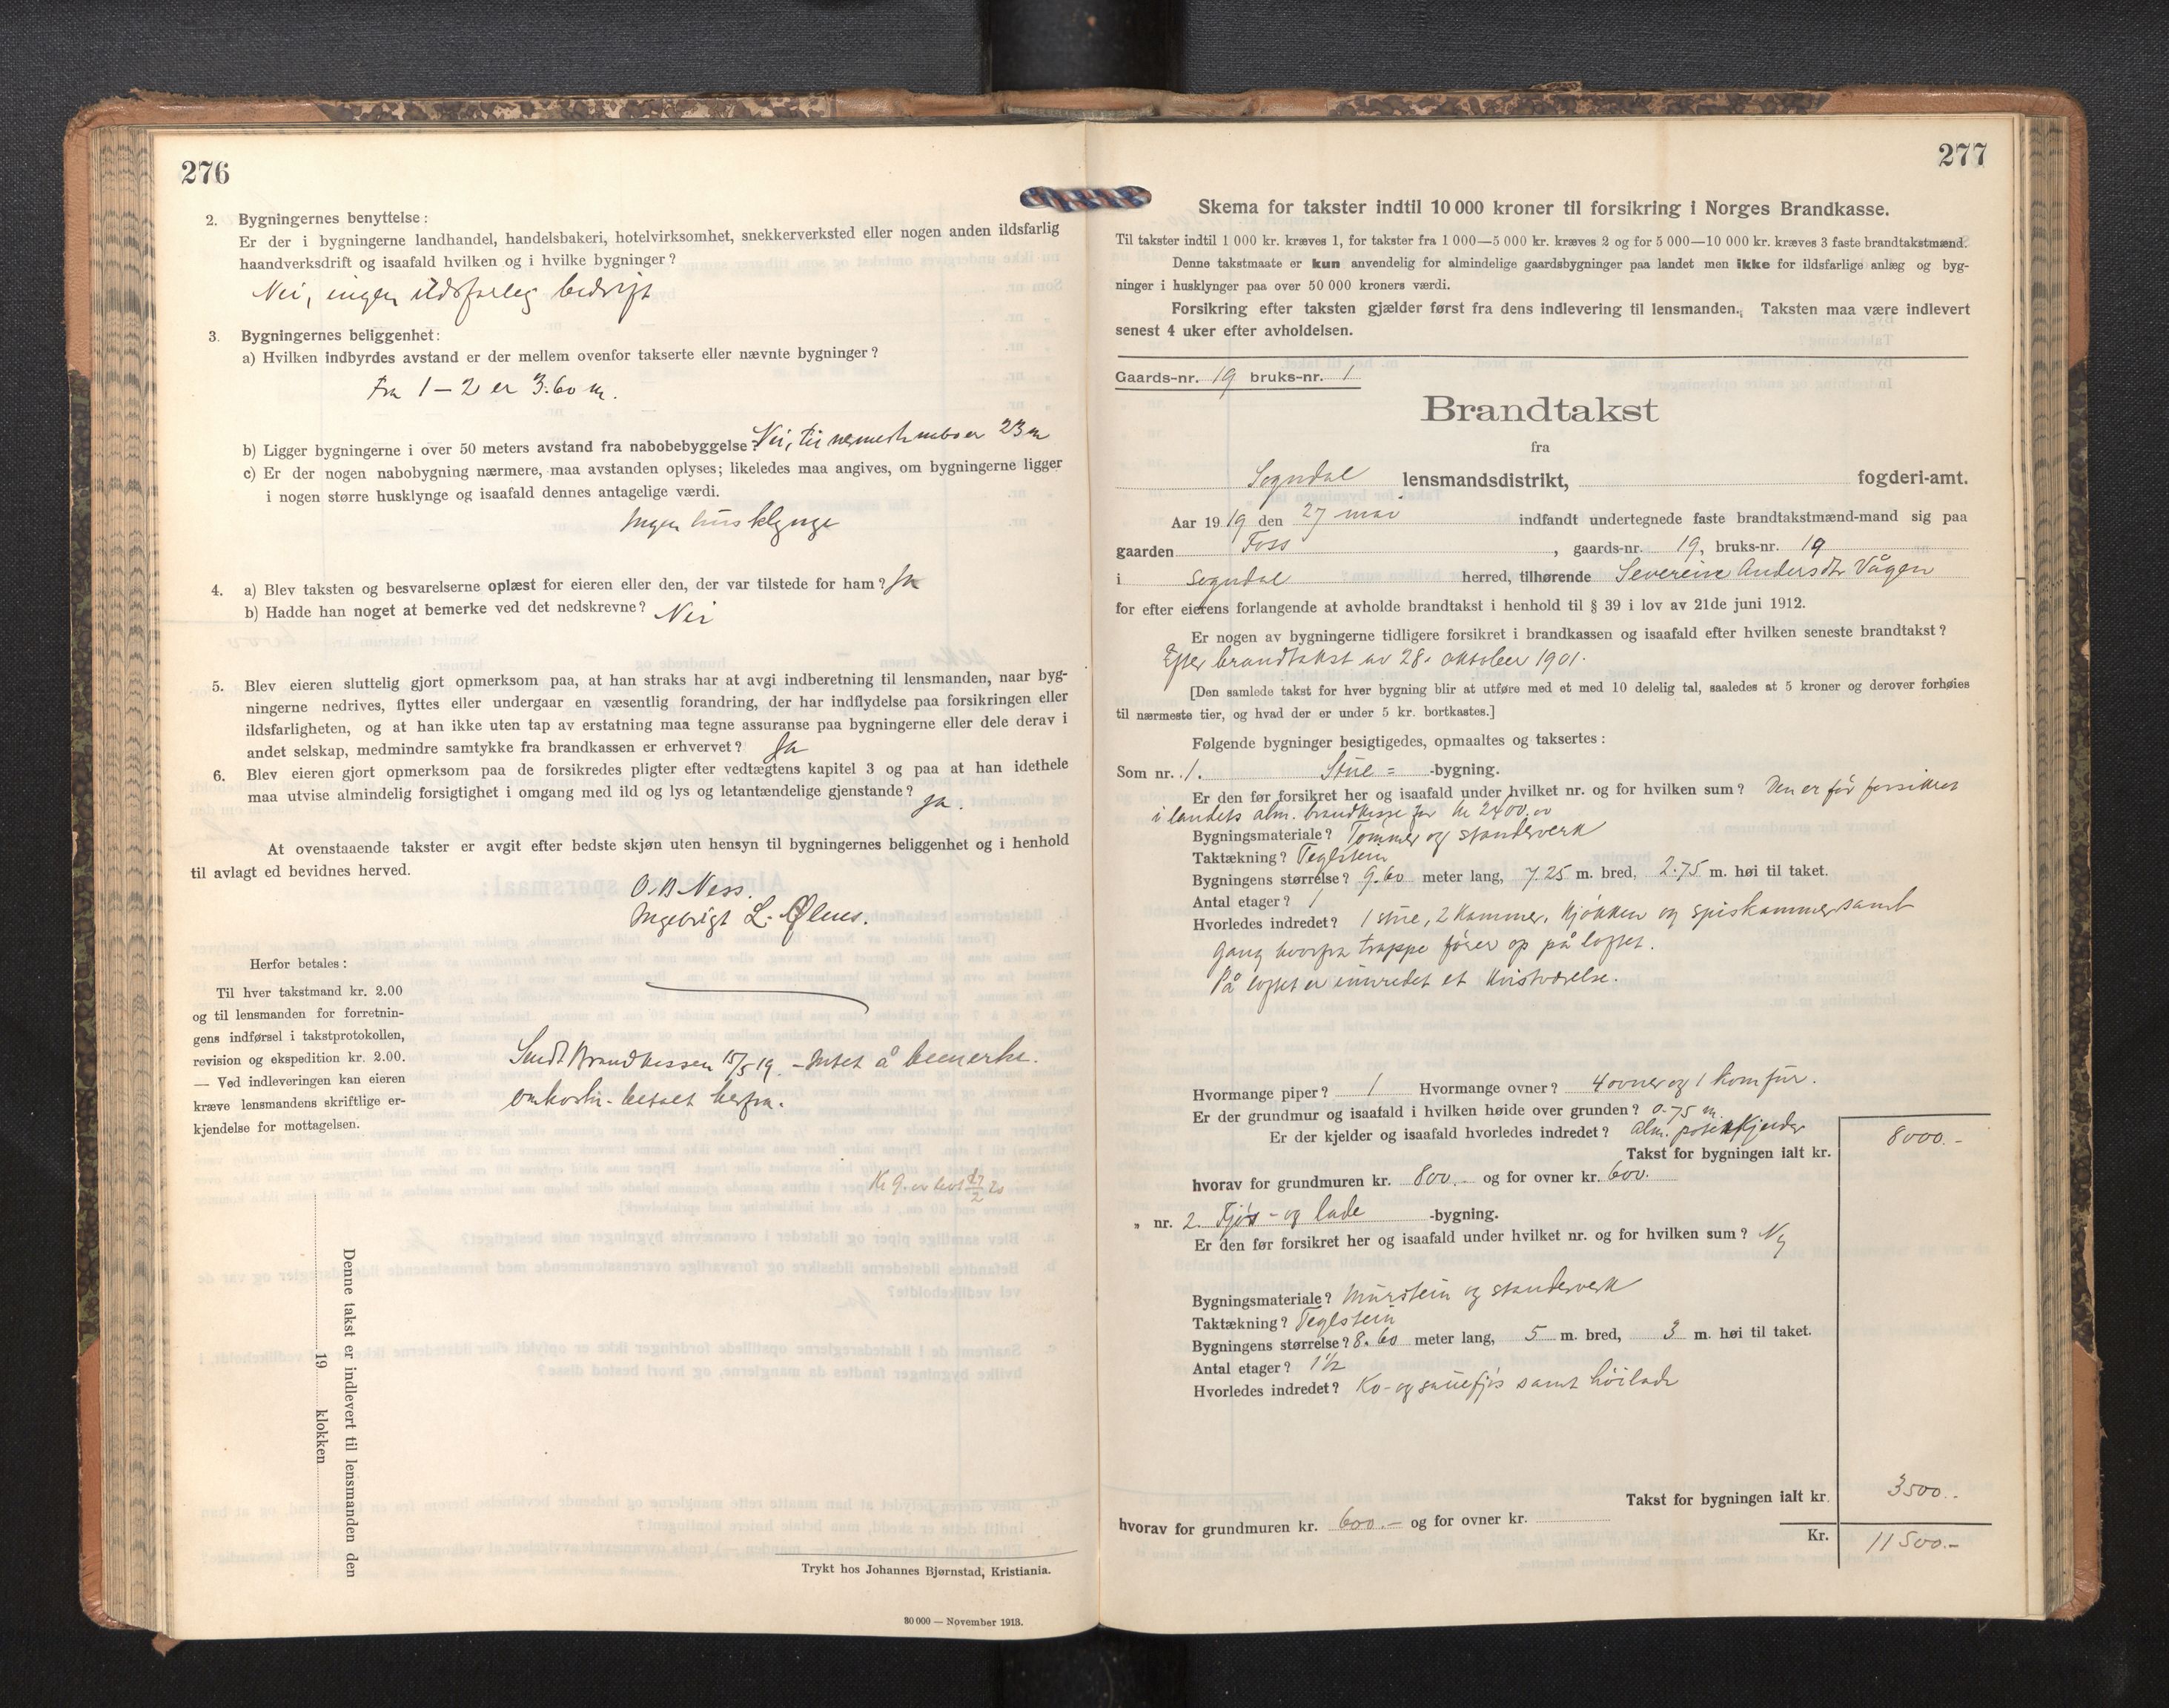 276
2. Bygningernes benyttelse:
Er der i bygningerne landhandel, handelsbakeri, hotelvirksomhet, snekkerverksted eller nogen anden ildsfarlig
haandverksdrift og isaafald hvilken og i hvilke bygninger?
Nei, ingen ildsfarleg bedrift
3. Bygningernes beliggenhet:
a) Hvilken indbyrdes avstand er der mellem ovenfor takserte eller nævnte bygninger?
Fra 1 – 2 er 3.60 m.
b) Ligger bygningerne i over 50 meters avstand fra nabobebyggelse? Nei, til nærmeste nabo er 23 m
c) Er der nogen nabobygning nærmere, maa avstanden oplyses; likeledes maa angives, om bygningerne ligger
i nogen større husklynge og isaafald dennes antagelige værdi.
Ingen husklynge
4. a) Blev taksten og besvarelserne oplæst for eieren eller den, der var tilstede for ham? Ja
b) Hadde han noget at bemerke ved det nedskrevne? Nei
5. Blev eieren sluttelig gjort opmerksom paa, at han straks har at avgi indberetning til lensmanden, naar byg-
ningerne nedrives, flyttes eller undergaar en væsentlig forandring, der har indflydelse paa forsikringen eller
ildsfarligheten, og at han ikke uten tap av erstatning maa tegne assuranse paa bygningerne eller dele derav i
andet selskap, medmindre samtykke fra brandkassen er erhvervet? Ja
6. Blev eieren gjort opmerksom paa de forsikredes pligter efter vedtægtens kapitel 3 og paa at han idethele
maa utvise almindelig forsigtighet i omgang med ild og lys og letantændelige gjenstande? Ja.
At ovenstaaende takster er avgit efter bedste skjøn uten hensyn til bygningernes beliggenhet og i henhold
til avlagt ed bevidnes herved.
O. B. Ness.
Ingebrigt L. Ølnes.
Herfor betales:
Til hver takstmand kr. 2.00
og til lensmanden for forretnin-
gens indførsel i takstprotokollen,
revision og ekspedition kr. 2.00.
— Ved indleveringen kan eieren
kræve lensmandens skriftlige er-
kjendelse for mottagelsen.
Sendt Brandkassen 15/5 19. – Intet å bemerke.
omkostn. betalt herfra.
Kr 9. er
Denne takst er indlevert til lensmanden den
19 klokken
Trykt hos Johannes Bjørnstad, Kristiania.
30 000 — November 1913.
277
Skema for takster indtil 10 000 kroner til forsikring i Norges Brandkasse.
Til takster indtil 1 000 kr. kræves 1, for takster fra 1 000—5 000 kr. kræves 2 og for 5 000—10 000 kr. kræves 3 faste brandtakstmænd.
Denne takstmaate er kun anvendelig for almindelige gaardsbygninger paa landet men ikke for ildsfarlige anlæg og byg-
ninger i husklynger paa over 50 000 kroners værdi.
Forsikring efter taksten gjælder først fra dens indlevering til lensmanden. Taksten maa være indlevert
senest 4 uker efter avholdelsen.
Gaards-nr. 19 bruks-nr. 1
Brandtakst
fra
Sogndal lensmandsdistrikt, fogderi-amt.
Aar 1919 den 27 mai indfandt undertegnede faste brandtakstmænd-mand sig paa
gaarden Foss, gaards-nr. 19, bruks-nr. 19
i Sogndal herred, tilhørende Severine Andersdtr Vågen
for efter eierens forlangende at avholde brandtakst i henhold til § 39 i lov av 21de juni 1912.
Er nogen av bygningerne tidligere forsikret i brandkassen og isaafald efter hvilken seneste brandtakst?
Efter brandtakst av 28. oktober 1901.
[Den samlede takst for hver bygning blir at utføre med et med 10 delelig tal, saaledes at 5 kroner og derover forhøies
til nærmeste tier, og hvad der er under 5 kr. bortkastes.]
Følgende bygninger besigtigedes, opmaaltes og taksertes:
Som nr. 1. Stue = -bygning.
Er den før forsikret her og isaafald under hvilket nr. og for hvilken sum? Den er før forsikret
i landets alm. brandkasse for kr 2400.00
Bygningsmateriale? Tømmer og standerverk
Taktækning? Teglstein
Bygningens størrelse? 9.60 meter lang, 7.25 m. bred, 2.75 m. høi til taket.
Antal etager? 1
Hvorledes indredet? 1 stue, 2 kammer, kjøkken og spiskammer samt
gang hvorfra trappe fører op på loftet.
På loftet er innredet et kvistværelse.
Hvormange piper? 1 Hvormange ovner? 4 ovner og 1 komfur.
Er der grundmur og isaafald i hvilken høide over grunden? 0.75 m.
Er der kjelder og isaafald hvorledes indredet? Alm. potetkjelder
Takst for bygningen ialt kr. 8000.–
hvorav for grundmuren kr. 800.– og for ovner kr. 600.
„ nr. 2. Fjøs- og lade -bygning.
Er den før forsikret her og isaafald under hvilket nr. og for hvilken sum? Ny
Bygningsmateriale? Murstein og standerverk
Taktækning? Teglstein
Bygningens størrelse? 8.60 meter lang, 5 m. bred, 3 m. høi til taket.
Antal etager? 1 ½
Hvorledes indredet? Ko- og sauefjøs samt høilade
Takst for bygningen ialt kr. 3500..
hvorav for grundmuren kr. 600.– og for ovner kr.
Kr. 11500.–